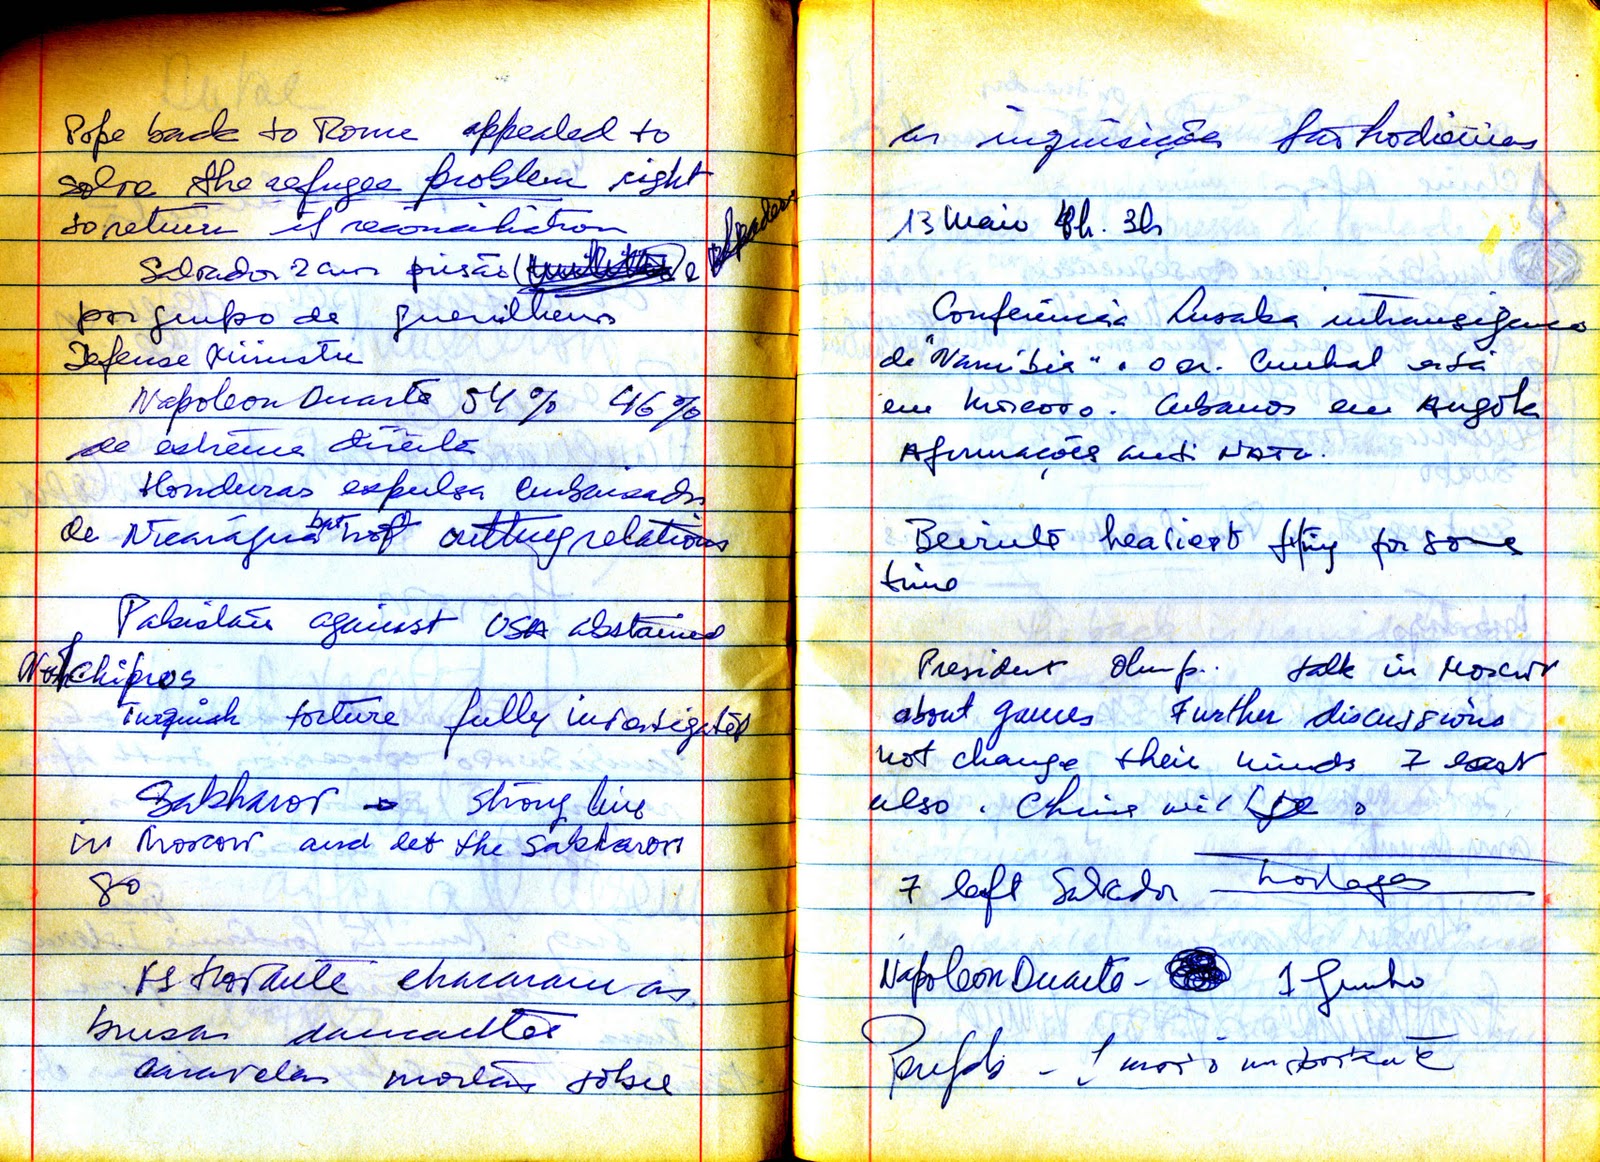 Pope back to Rome appealed to
solve the refugee problem right
to return if reconciliation
Salvador 2 anos prisão e
por grupo de guerilheiros
Defense Ministre
Napoleon Duarte 54% 46%
de estrema direita
Honduras expulsa embaixador
de Nicarágua but not cutting relations
Pakistan against USA abstained
North Chipros
Turquish torture fully investigated
Sakharov strong line
in Moscow and let the Sakharov
go
chocaram as
brisas
caravelas mortas sobre
as inquisições
13 Maio 3h
Conferência Lusaka intransigence
de "Namibia". o dr. Cunhal está
em Moscovo. Cubanos em Angola
Afirmações anti NATO.
Beirute heaviest for some
time
President Olimp.. talk in Moscow
about games Further discussions
not change their minds 7 east
also. China will go
7 left Salvador hostages
Napoleon Duarte - 1 Junho
- 1 morto importante